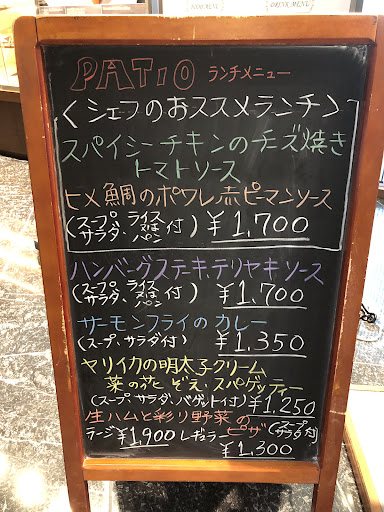 PATIO ランチメニュー
<シェフのおススメランチ>
スパイシーチキンのチーズ焼き
トマトソース
ヒメ鯛のポワレ赤ピーマンソース
(スープ、ライス又はパン サラダ、付) ¥1,700
ハンバーグステーキ、テリヤキソース
(スープ、ライス又はパン サラダ、付) ¥1,700
サーモンフライのカレー
(スープ、サラダ付) ¥1,350
ヤリイカの明太子クリーム
菜の花ぞえ、スパゲッティー
(スープ、サラダ、バゲット付) ¥1,250
生ハムと彩り野菜のピザ (スープ サラダ付)
ラージ ¥1,900 レギュラー ¥1,300
DRINK MENU